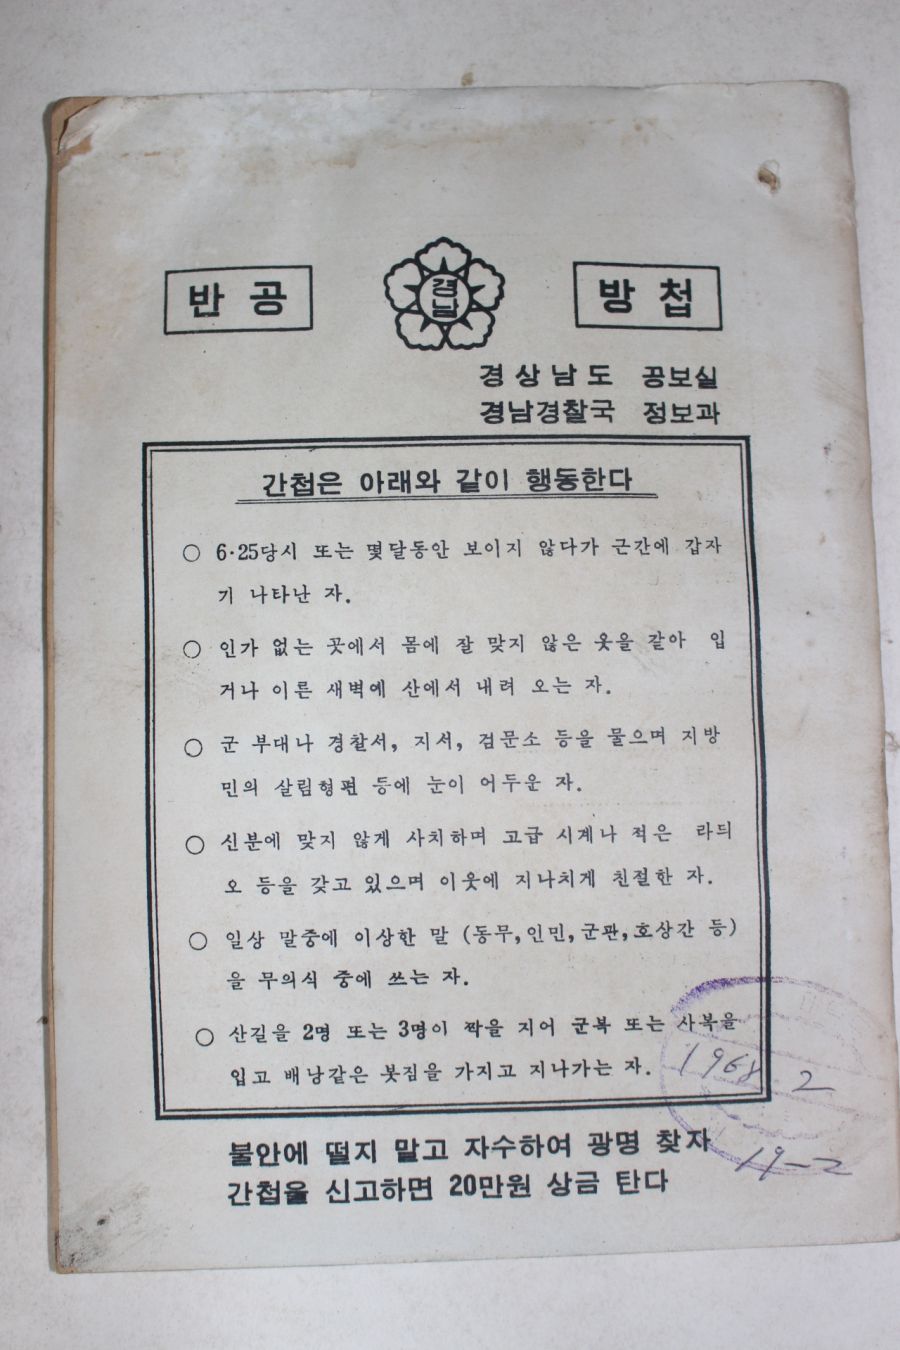 반공
경남
방첩
경상남도 공보실
경남경찰국 정보과
간첩은 아래와 같이 행동한다
○ 6·25당시 또는 몇달동안 보이지 않다가 근간에 갑자
기 나타난 자.
○ 인가 없는 곳에서 몸에 잘 맞지 않은 옷을 갈아 입
거나 이른 새벽에 산에서 내려 오는 자.
○ 군 부대나 경찰서, 지서, 검문소 등을 물으며 지방
민의 살림형편 등에 눈이 어두운 자.
○ 신분에 맞지 않게 사치하며 고급 시계나 적은 라듸
오 등을 갖고 있으며 이웃에 지나치게 친절한 자.
○ 일상 말중에 이상한 말 (동무,인민,군관,호상간 등)
을 무의식 중에 쓰는 자.
○ 산길을 2명 또는 3명이 짝을 지어 군복 또는 사복을
입고 배낭같은 봇짐을 가지고 지나가는 자.
1968. 2
19-2
불안에 떨지 말고 자수하여 광명 찾자
간첩을 신고하면 20만원 상금 탄다